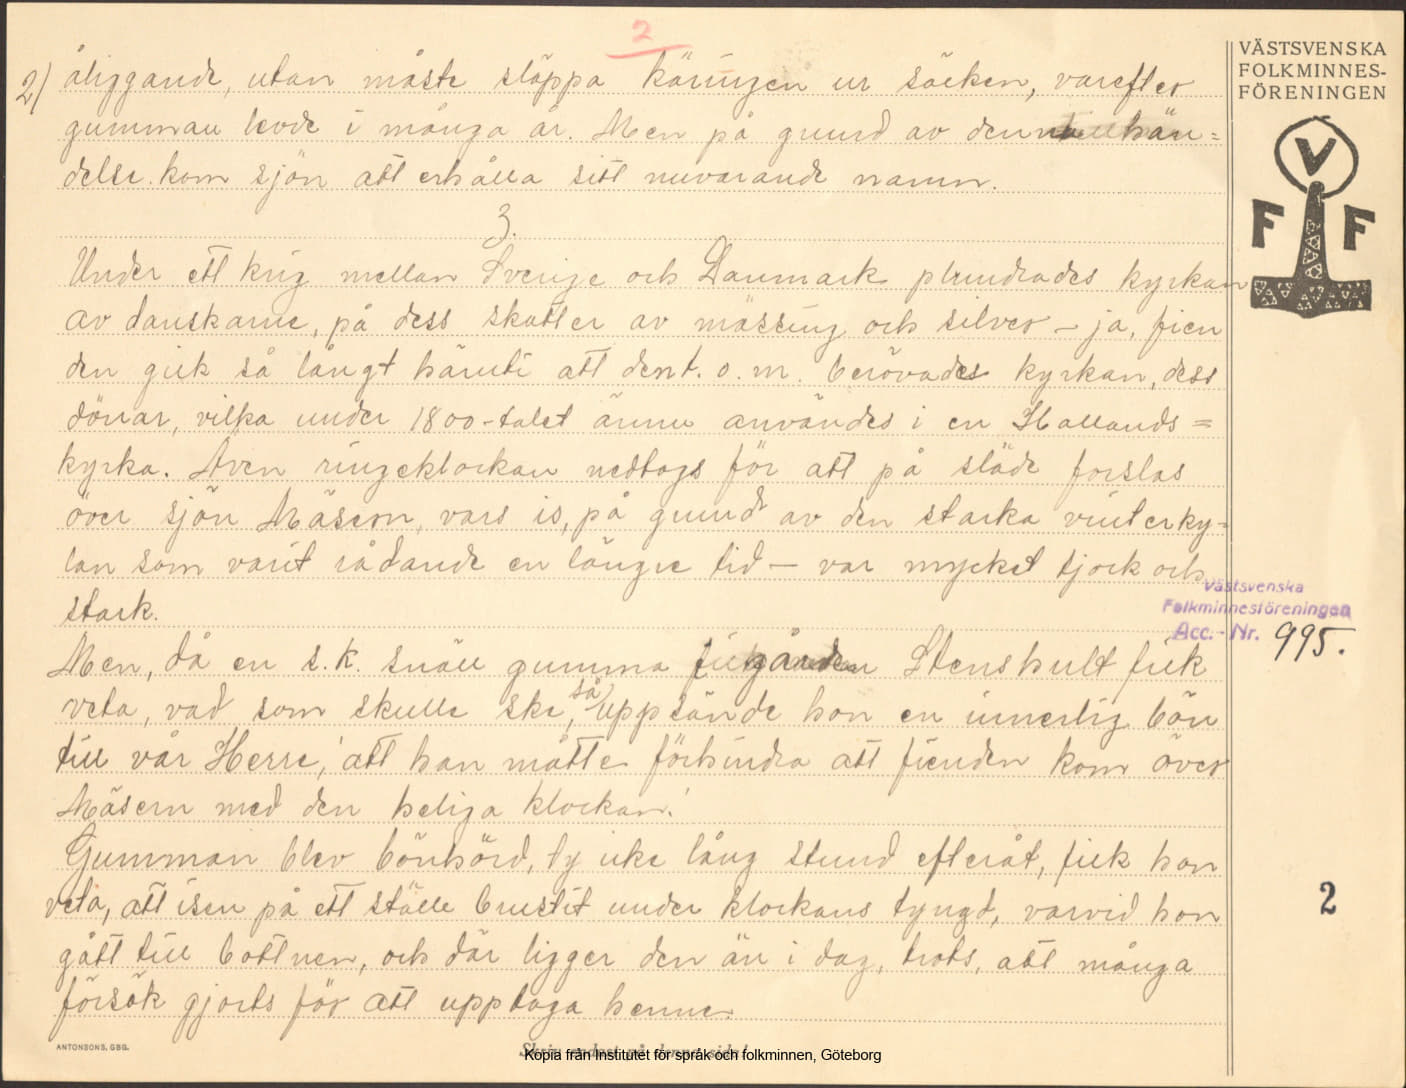 2
2) åliggande, utan måste släppa käringen ur säcken, varefter
gumman levde i många år. Men på grund av denna hän=
delse kom sjön att erhålla sitt nuvarande namn.
3.
Under ett krig mellan Sverige och Danmark plundrades kyrkan
av danskarne, på dess skatter av mässing och silver – ja, fien
den gick så långt häruti att den t. o. m. berövades kyrkan, dess
dörrar, vilka under 1800-talet ännu användes i en Hallands=
kyrka. Även ringeklockan nedtogs för att på släde forslas
över sjön Mäsern, vars is, på grund av den starka vinterky=
lan som varit rådande en längre tid – var mycket tjock och
stark.
Men, då en s.k. snäll gumma gården Stenshult fick
veta, vad som skulle ske, så uppsände hon en innerlig bön
till vår Herre, att han måtte förhindra att fienden kom över
Mäsern med den heliga klockan!
Gumman blev bönhörd, ty icke lång stund efteråt, fick hon
veta, att isen på ett ställe brustit under klockans tyngd, varvid hon
gått till bottnen, och där ligger den än i dag, trots, att många
försök gjorts för att upptaga henne.
VÄSTSVENSKA
FOLKMINNES-
FÖRENINGEN
V
F F
Västsvenska
Folkminnesföreningen
Acc.-Nr. 995.
2
ANTONSONS, GBG.
Skriv endast på denna sida!
Kopia från Institutet för språk och folkminnen, Göteborg